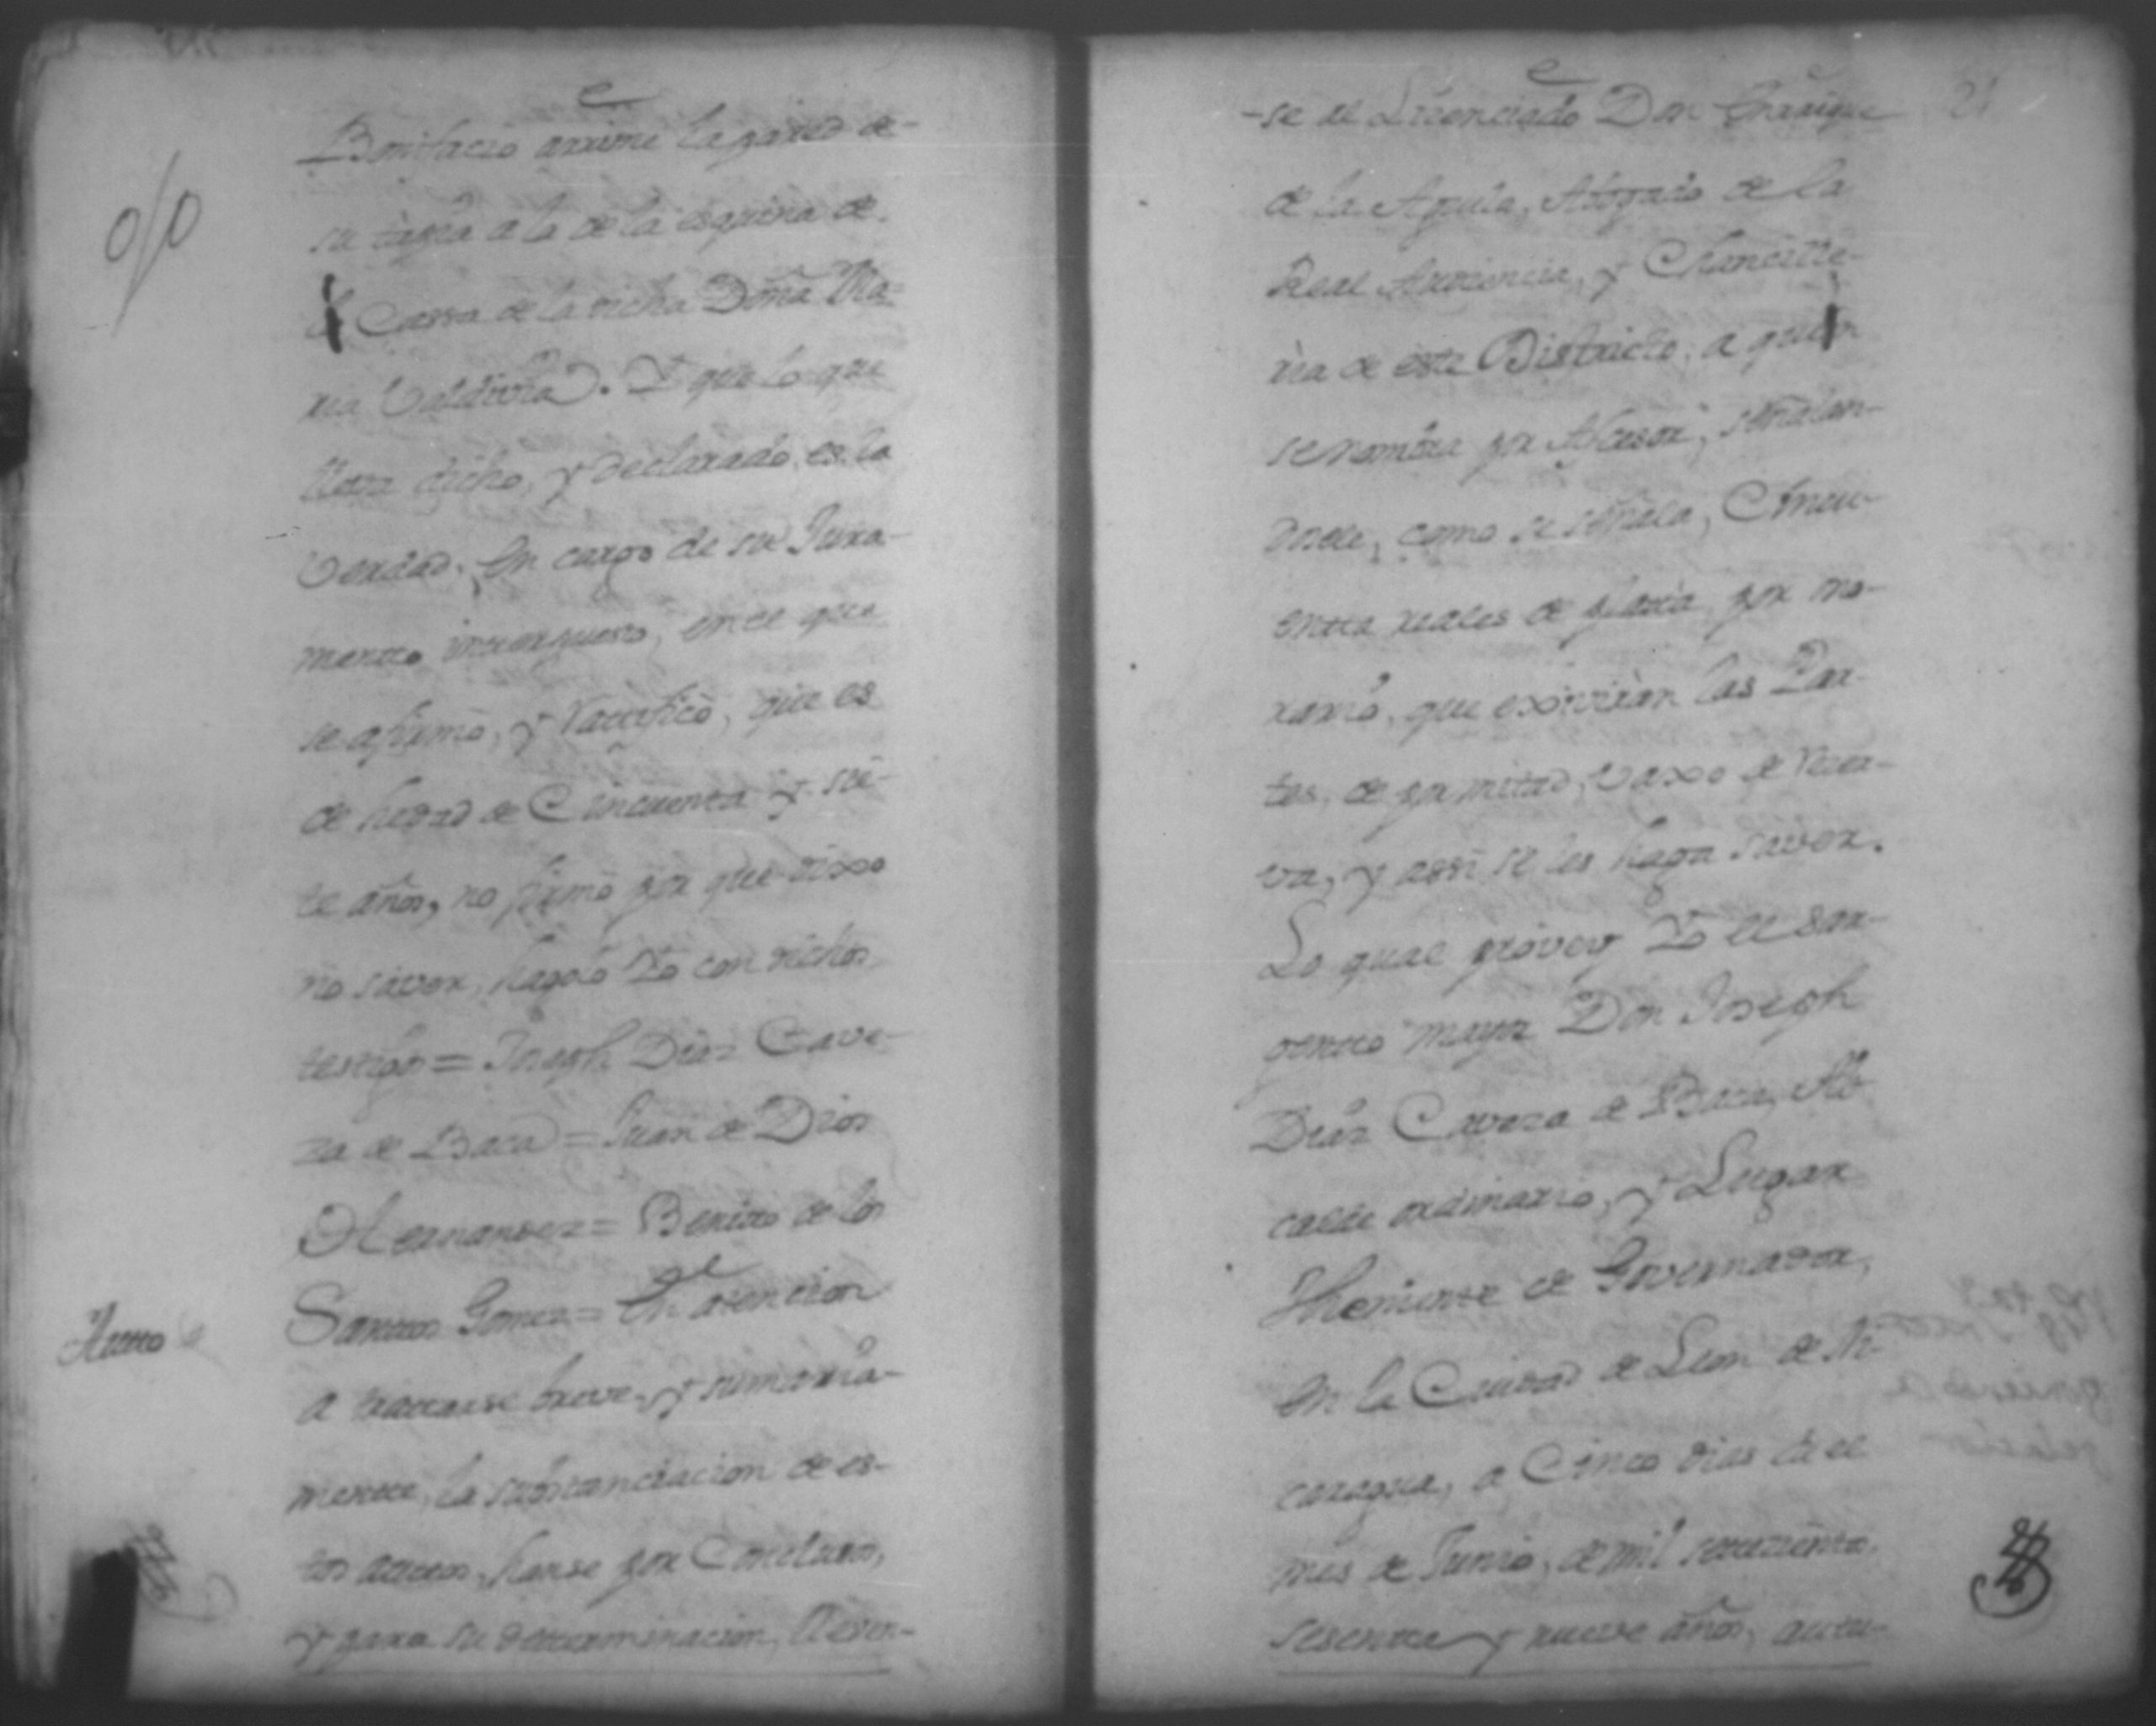 Bonifacio arrime la pared de
su tapia a la de la esquina de
la Cassa de la dicha Doña Ma=
ria Valdivia. Y que lo que
lleva dicho, y declarado es la
Verdad, en cargo de su Jura-
mentto interpuesto, en el que
se afirmò, y Ratificò, que es
de hedad de Cincuenta y sie-
te años, no firmò por que dixo
no saver, hagolo Yo con dichos
testigos = Joseph Diaz Cave-
za de Baca = Juan de Dios
Hernandez = Benito de los
Auto
Santtos Gomez = En atencion
a tratarse breve, y sumaria-
mente, la substanciacion de es-
tos autos, hanse por Conclusos,
y para su determinacion, lleven-
-se al Licenciado Don Enrrique
de la Aguila, Abogado de la
Real Audiencia, y Chancille-
ria de este Districto, a quien
se nombra por Assesor, señalan-
dosele, como se señala, Cincu-
enta reales de platta, por ho-
rario, que exivirán las Par-
tes, de por mitad, vaxo de Reser-
va, y assi se les haga saver.
Lo qual provey Yo el Sar-
gento mayor Don Joseph
Diaz Caveza de Baca, Al-
calde ordinario, y Lugar
Theniente de Governador,
en la Ciudad de Leon de Ni-
caragua, a Cinco dias de el
mes de Junio, de mil settecientos
sesenta y nueve años, actu-